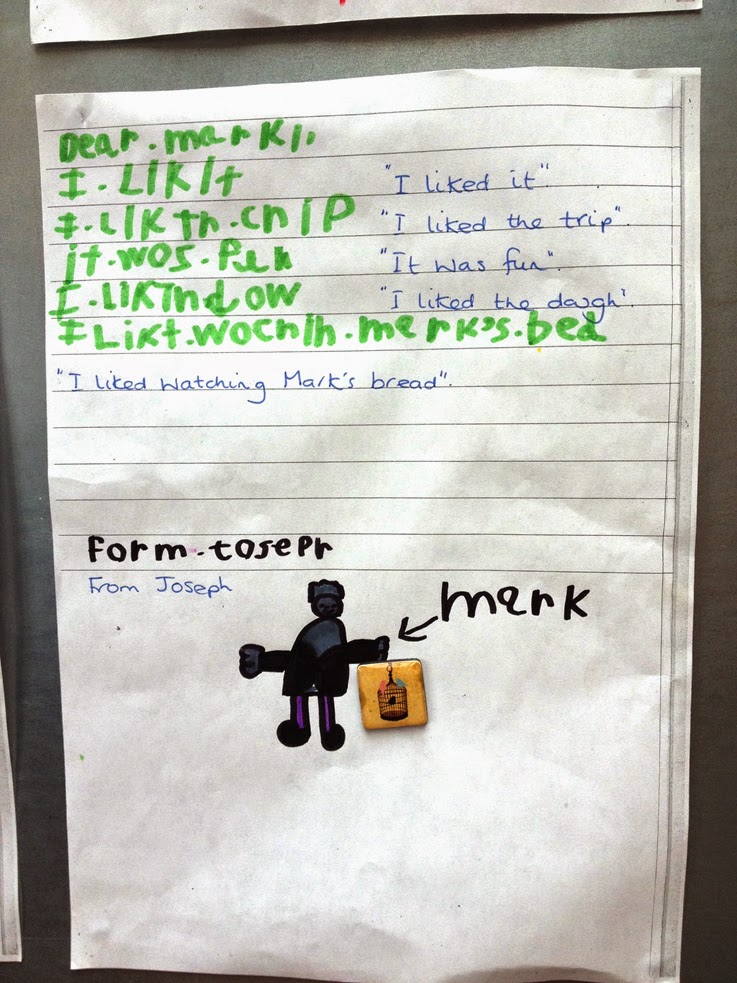 Dear.mark1.
I.LIKIt "I liked it"
I.LIKTh.ChIP "I liked the trip".
it.wos.Fun "It was fun".
I.LIKThdow "I liked the dough"
I Likt.wochih.merk's.bed
"I liked watching Mark's bread".
form.toseph
From Joseph
merk